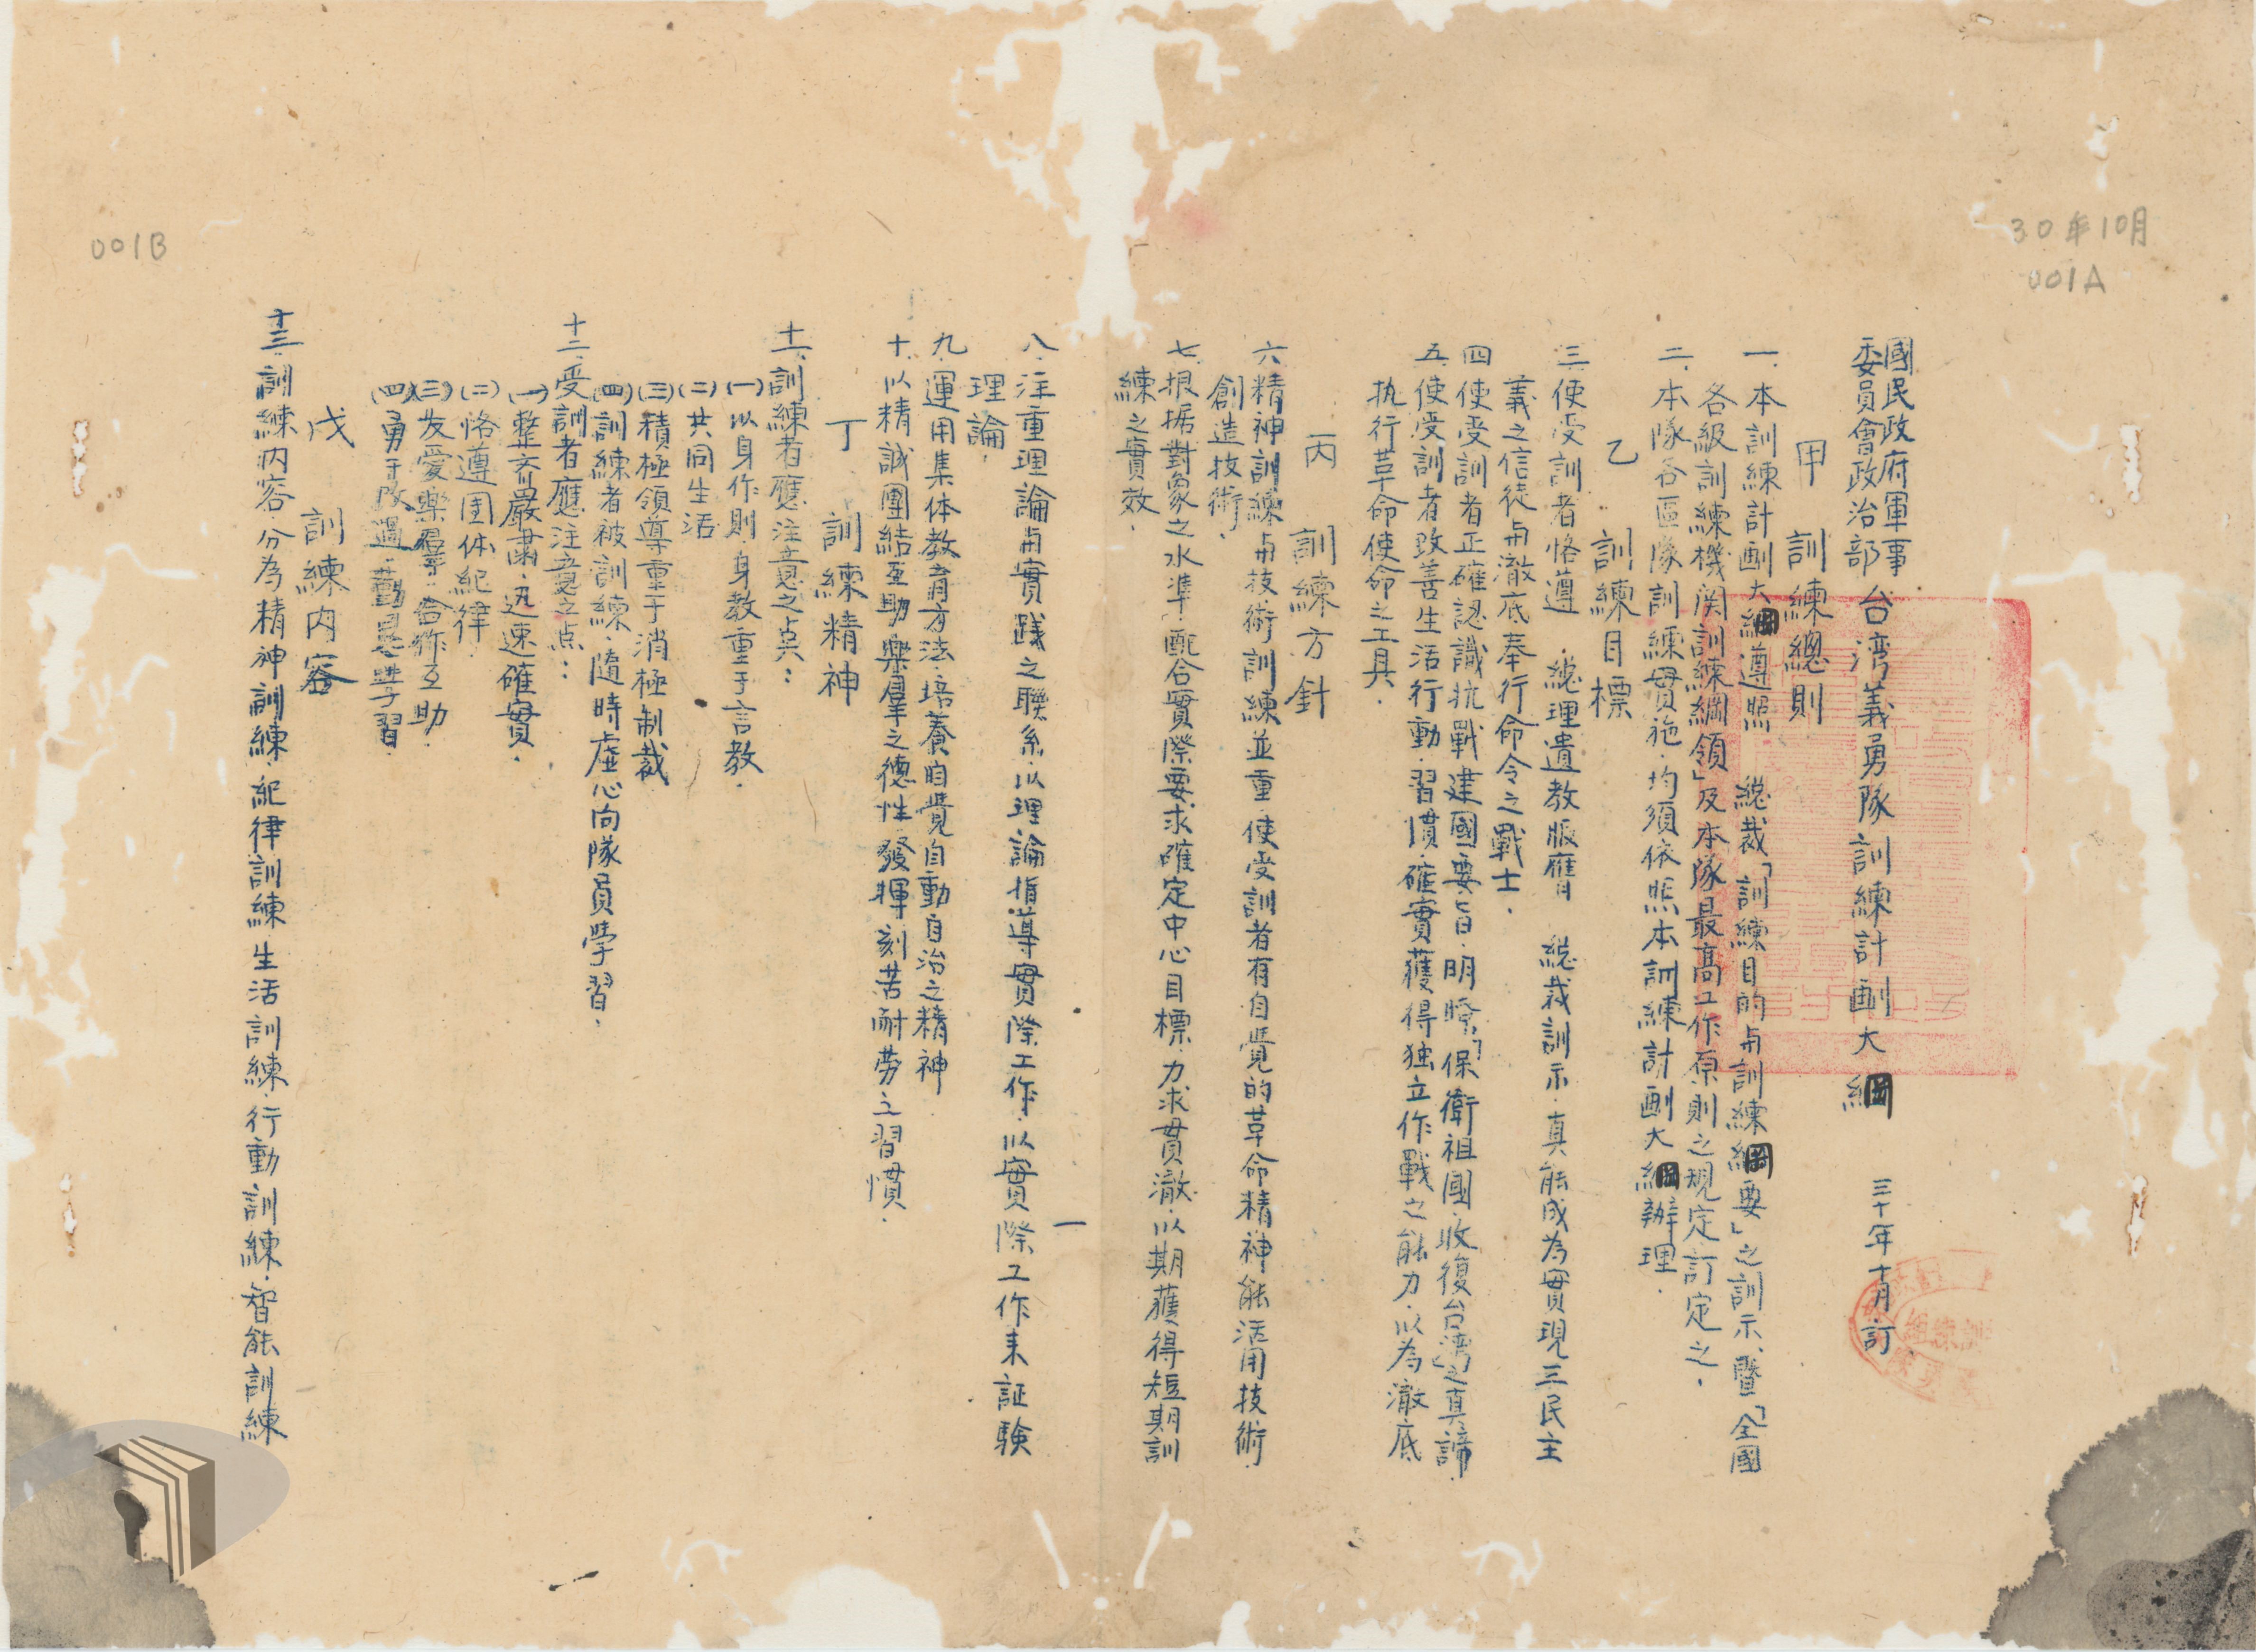 30年10月
001A
國民政府軍事
委員會政治部
台湾義勇隊訓練計劃大綱
三十年十月訂
甲 訓練總則
一、本訓練計劃大綱遵照 總裁「訓練目的与訓練綱要」之訓示、暨「全國
各級訓練機関訓練綱領」及本隊最高工作原則之規定訂定之.
二、本隊各區隊訓練實施.均須依照本訓練計劃大綱辦理.
乙 訓練目標
三 使受訓者恪遵 總理遺教服膺 總裁訓示.真能成為實現三民主
義之信徒与澈底奉行命令之戰士.
四 使受訓者正確認識抗戰建國要旨.明瞭「保衛祖國.收復台灣」之真諦.
五 使受訓者改善生活行動.習慣.確實獲得独立作戰之能力.以為澈底
执行革命使命之工具.
丙 訓練方針
六 精神訓練与技術訓練並重 使受訓者有自覺的革命精神能活用技術.
創造技術.
七、根据對象之水準.配合實際要求確定中心目標.力求貫澈.以期獲得短期訓
練之實效.
一
八.注重理論与實踐之聯系.以理論指導實際工作.以實際工作来証驗
理論.
九.運用集体教育方法.培養自覺自動自治之精神
十.以精誠團結互助.樂羣之德性.發揮刻苦耐劳之習慣.
丁 訓練精神
十一、訓練者應注意之点:
(一)以身作則.身教重于言教.
(二)共同生活
(三)積極領導重于消極制裁
(四)訓練者被訓練.隨時虛心向隊員學習.
十二.受訓者應注意之点:
(一)整齐嚴肅.迅速確實.
(二)恪遵团体紀律.
(三)友愛樂羣.合作互助.
(四)勇于改過.學習.
戊 訓練内容
十三.訓練内容.分為精神訓練.紀律訓練生活訓練.行動訓練.智能訓練
001B